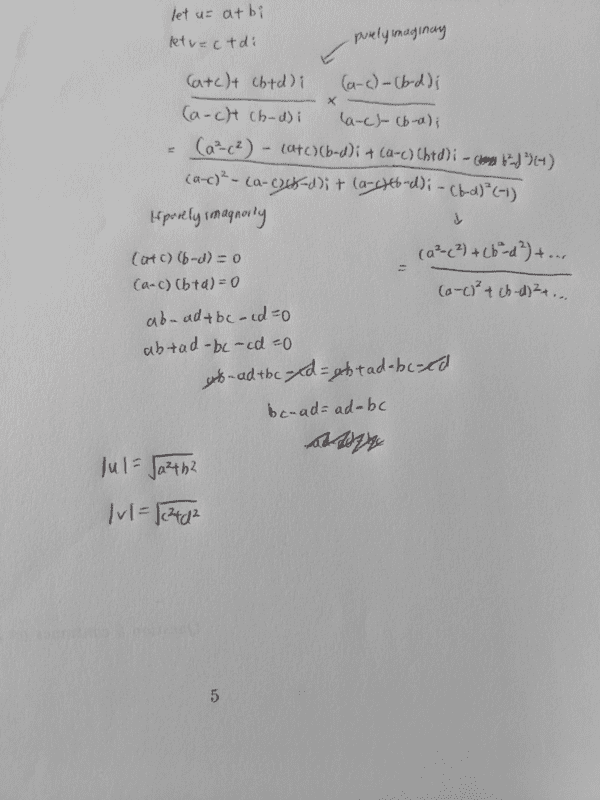 let u = a+bi
let v = c+di
purely imaginary
((a+c)+(b+d)i)/((a-c)+(b-d)i) × ((a-c)-(b-d)i)/((a-c)-(b-d)i)
= ((a²-c²) - (a+c)(b-d)i + (a-c)(b+d)i - (b²-d²)(-1))/((a-c)² - (a-c)(b-d)i + (a-c)(b-d)i - (b-d)²(-1))
If purely imaginarily
↓
(a+c)(b-d)=0
= ((a²-c²)+(b²-d²)+...)/((a-c)²+(b-d)²+...)
(a-c)(b+d)=0
ab-ad+bc-cd=0
ab+ad-bc-cd=0
ab-ad+bc-cd=ab+ad-bc-cd
bc-ad=ad-bc
|u|=√a²+b²
|v|=√c²+d²
5